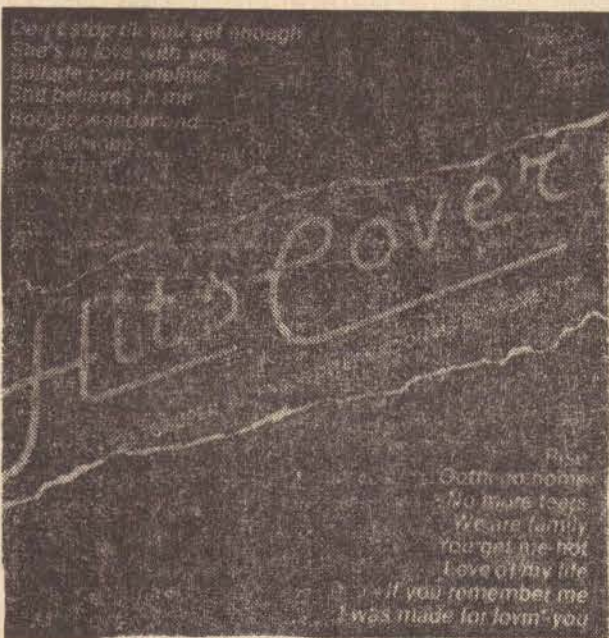 Don't stop til you get enough
She's in love with you
Ballade pour adeline
She believes in me
Boogie wonderland
Hits Cover
Rise
Gotta go home
No more tears
We are family
You get me hot
Love of my life
If you remember me
I was made for lovin' you